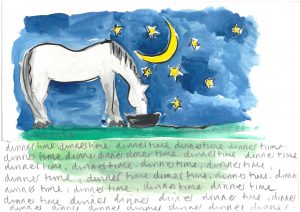 dinner time, dinner time dinner time dinner time dinner time
dinner time dinner dinner dinner time dinner time dinner time
dinner time, dinner time, dinner time, dinner time,
dinner time, dinner time, dinner time, dinner time, dinner
dinner time, dinner time, dinner time dinner time
dinner time dinner dinner dinner dinner time, dinner
dinner dinner dinner dinner dinner dinner